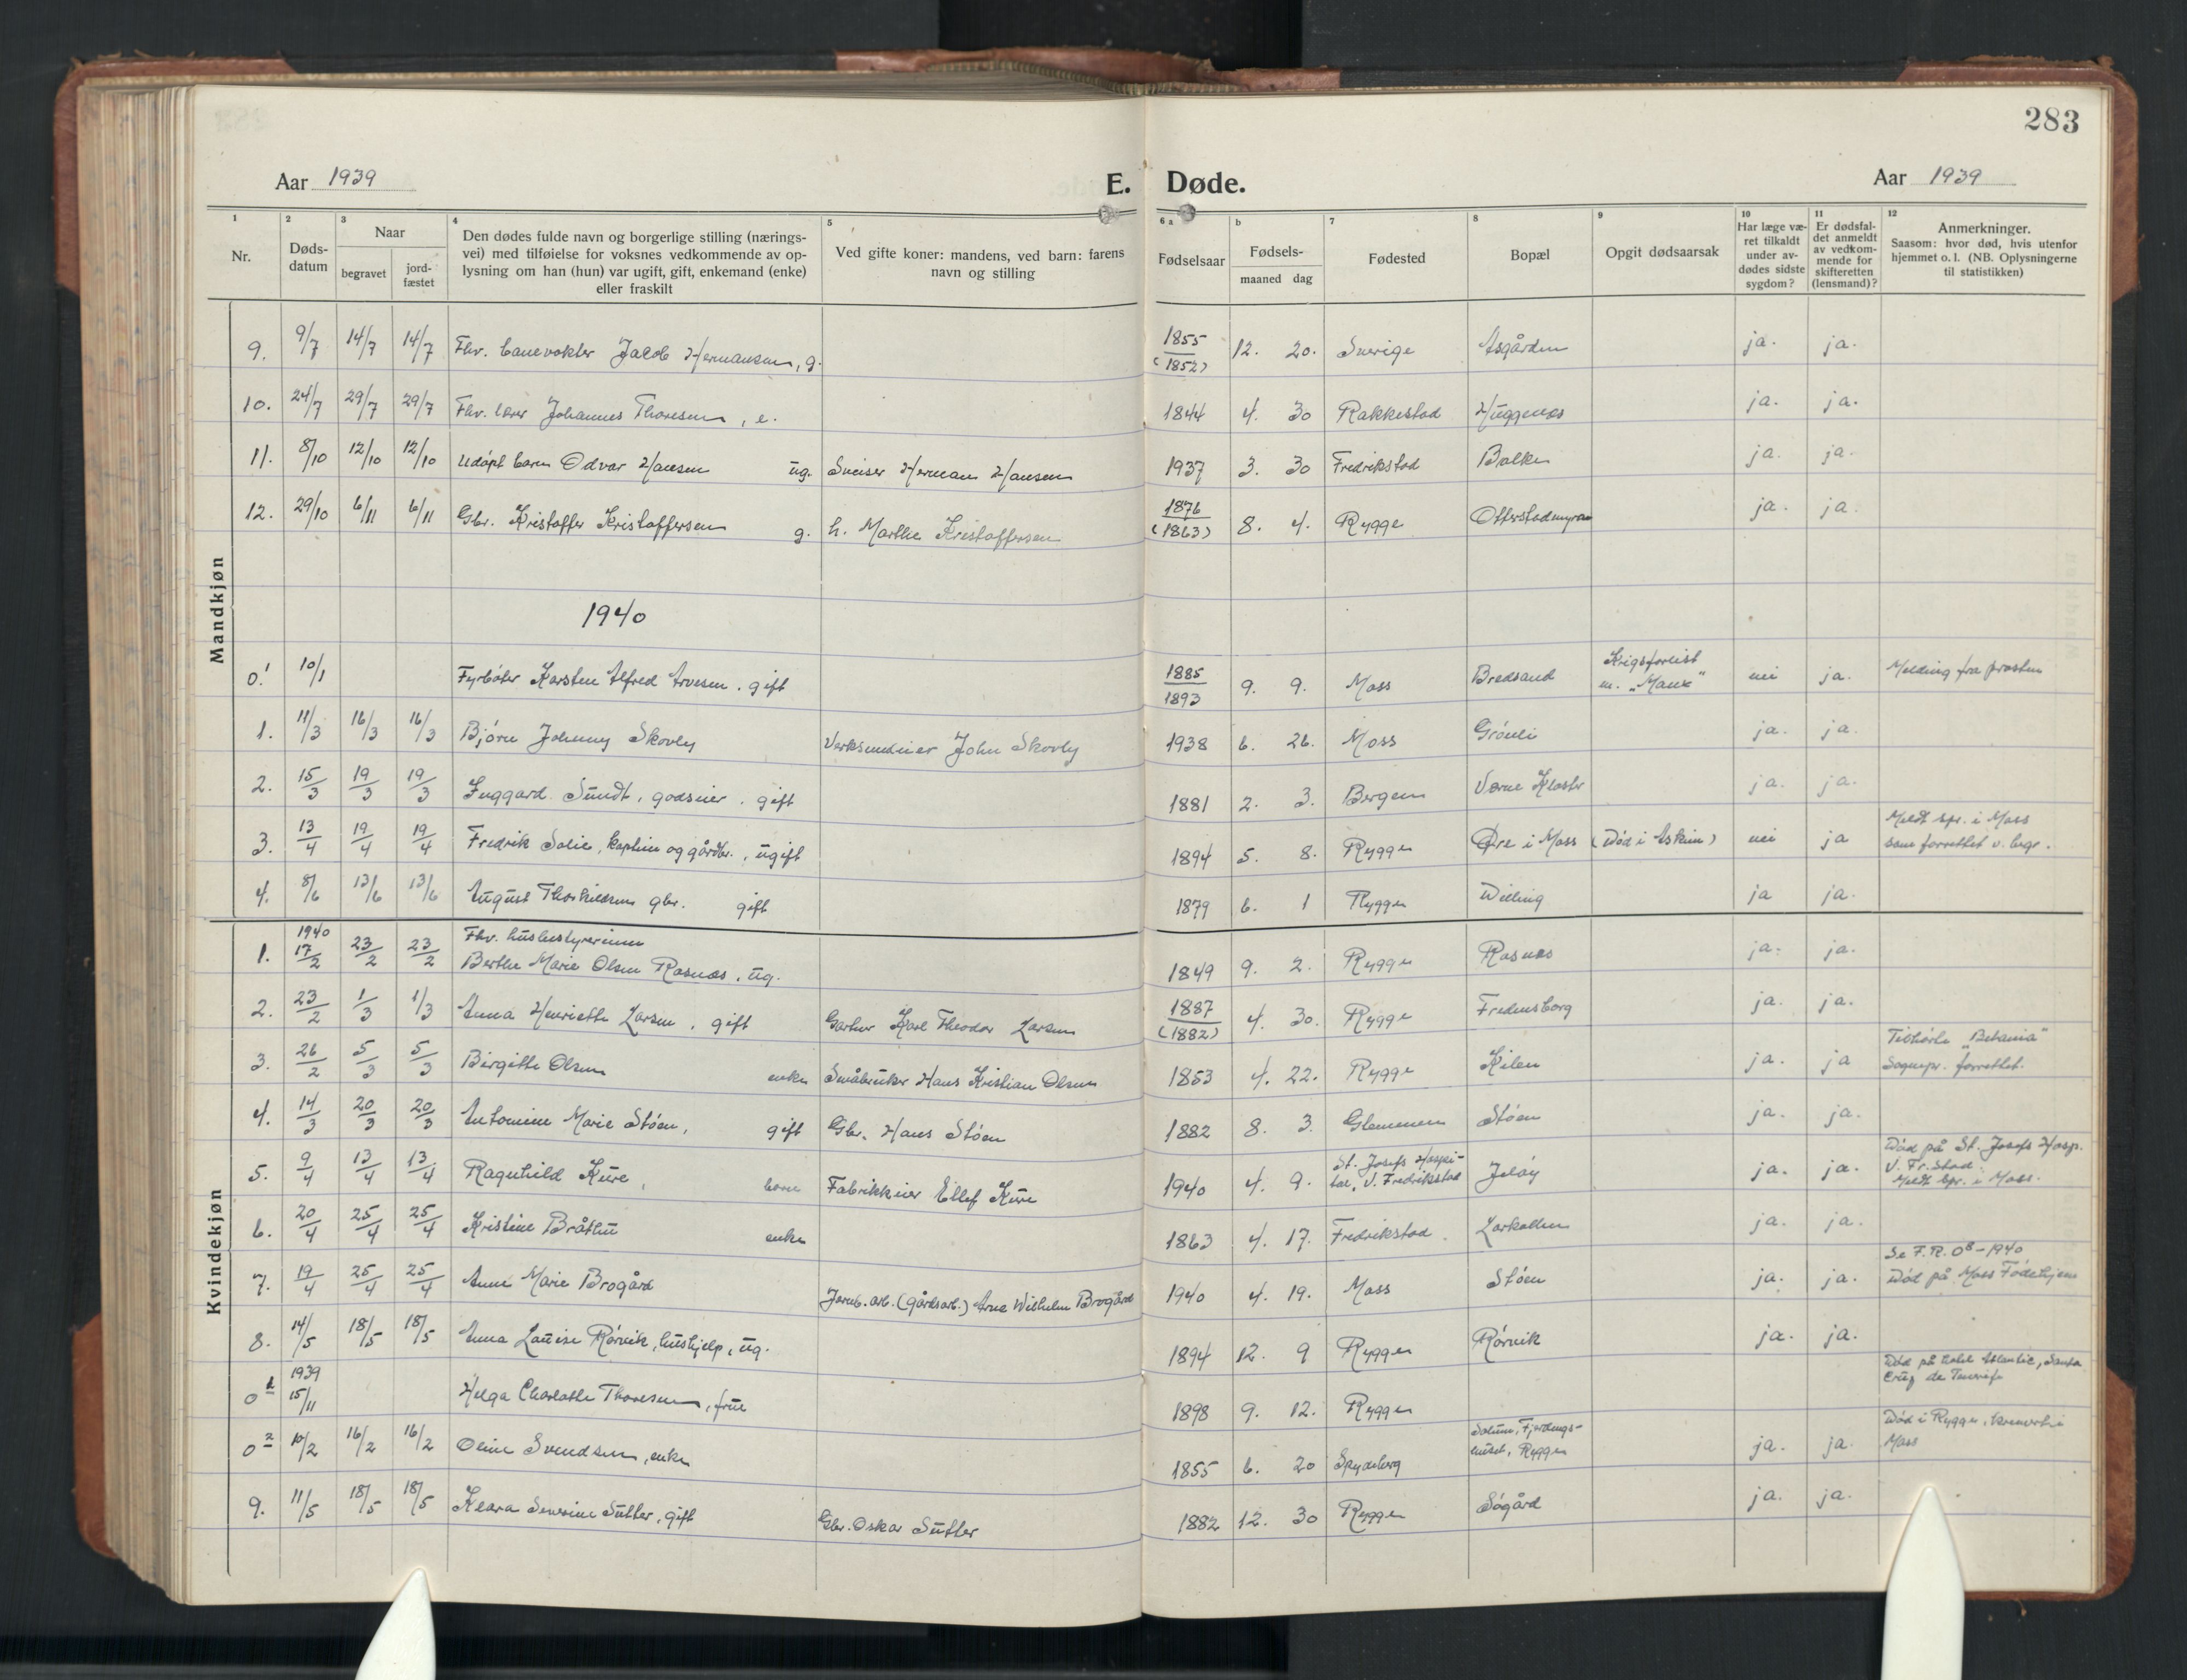 283
Aar 1939
E. Døde.
Aar 1939
1 Nr.
2 Døds-datum
3 Naar begravet jord-fæstet
4 Den dødes fulde navn og borgerlige stilling (nærings-
vei) med tilføielse for voksnes vedkommende av op-
lysning om han (hun) var ugift, gift, enkemand (enke)
eller fraskilt
5 Ved gifte koner: mandens, ved barn: farens
navn og stilling
6 a Fødselsaar
b Fødsels- maaned dag
7 Fødested
8 Bopæl
9 Opgit dødsaarsak
10 Har læge væ-
ret tilkaldt
under av-
dødes sidste
sygdom?
11 Er dødsfal-
det anmeldt
av vedkom-
mende for
skifteretten
(lensmand)?
12 Anmerkninger.
Saasom: hvor død, hvis utenfor
hjemmet o. l. (NB. Oplysningerne
til statistikken)
Mandkjøn
9. 9/7 14/7 14/7 Fhv. banevokter Jacob Hermansen, g. 1855 (1852) 12. 20. Sverige Åsgården ja. ja.
10. 24/7 29/7 29/7 Fhv. lærer Johannes Thoresen, e. 1844 4. 30 Rakkestad Huggenes ja. ja.
11. 8/10 12/10 12/10 Udøpt barn Odvar Hansen ug. Sveiser Herman Hansen 1937 3. 30 Fredrikstad Balke ja. ja.
12. 29/10 6/11 6/11 Gbr. Kristoffer Kristoffersen g. h. Marthe Kristoffersen 1876 (1863) 8. 4. Rygge Otterstadmyra ja. ja.
1940
0.1 10/1 Fyrbøter Karsten Alfred Arvesen. gift 1885 1893 9. 9. Moss Bredsand Krigsforlist m. "Manx" nei ja. Melding fra prosten
1. 11/3 16/3 16/3 Bjørn Johnny Skovly Verksmedeier John Skovly 1938 6. 26. Moss Grønli ja. ja.
2. 15/3 19/3 19/3 Inggard Sundt, godseier. gift 1881 2. 3. Bergen Værne Kloster ja. ja.
3. 13/4 19/4 19/4 Fredrik Solie, kaptein og gårdbr., ugift 1894 5. 8. Rygge Øre i Moss (Død i Askim) nei ja Meldt spr. i Moss
som forrettet v. begr.
4. 8/6 13/6 13/6 August Thorkildsen gbr. gift 1879 6. 1 Rygge Dilling ja ja.
Kvindekjøn
1. 1940 17/2 23/2 23/2 Fhv. husbestyrerinne
Berthe Marie Olsen Rosnæs, ug. 1849 9. 2. Rygge Rosnæs ja. ja.
2. 23/2 1/3 1/3 Anna Henriette Larsen, gift Gartner Karl Theodor Larsen 1887 (1882) 4. 30. Rygge Fredensborg ja. ja.
3. 26/2 5/3 5/3 Birgitte Olsen enke Småbruker Hans Kristian Olsen 1853 4. 22. Rygge Kilen ja. ja Tilhørte "Betania"
Sognepr. forrettet.
4. 14/3 20/3 20/3 Antomine Marie Støen, gift Gbr. Hans Støen 1882 8. 3. Glemmen Støen ja. ja.
5. 9/4 13/4 13/4 Ragnhild Kure, barn Fabrikkeier Ellef Kure 1940 4. 9. St. Josefs Hospi-
tal, V. Fredrikstad Jeløy ja. ja. Død på St. Josefs Hosp.
V. Fr.stad.
Meldt spr. i Moss.
6. 20/4 25/4 25/4 Kristine Bråthu enke 1863 4. 17. Fredrikstad. Larkollen ja. ja.
7. 19/4 25/4 25/4 Anne Marie Brogård Jernb. arb. (gårdsarb.) Arne Wilhelm Brogård 1940 4. 19. Moss Støen ja. ja. Se F. R. 08 - 1940
Død på Moss Fødehjem
8. 14/5 18/5 18/5 Anna Louise Rørvik, hushjelp, ug. 1894 12. 9 Rygge Rørvik ja. ja.
0 1 1939 15/11 Helga Charlotte Thoresen, frue 1898 9. 12. Rygge Død på hotel Atlantic, Santa
Cruz de Tenerife
0 2 10/2 16/2 16/2 Oline Svendsen, enke 1855 6. 20 Spydeberg Solum, Fjerdings-
huset, Rygge ja. ja. Død i Rygge, kremert i
Moss
9. 11/5 18/5 18/5 Klara Severine Sutter, gift Gbr. Oskar Sutter 1882 12. 30 Rygge Søgård ja. ja.